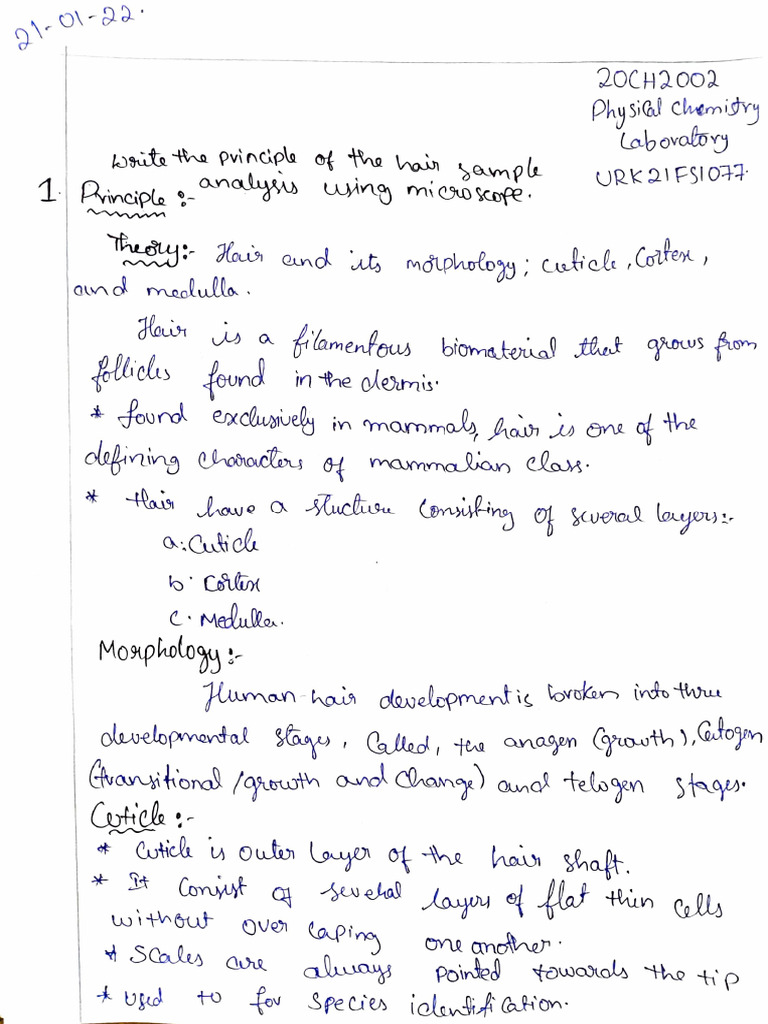 21-01-22.
20CH2002
Physical Chemistry
Laboratory
URK21FS1077.
Write the principle of the hair sample
analysis using microscope.
1. Principle:-
Theory:- Hair and its morphology; cuticle, Cortex,
and medulla.
Hair is a filamentous biomaterial that grows from
follicles found in the dermis.
* found exclusively in mammals, hair is one of the
defining characters of mammalian class.
* Hair have a stucture consisting of several layers:-
a. Cuticle
b. Cortex
c. Medulla.
Morphology:-
Human hair development is broken into three
developmental stages, Called, the anagen (growth), Catogen
(transitional/growth and change) and telogen stages.
Cuticle:-
* Cuticle is outer layer of the hair shaft.
* It consist of several layers of flat thin cells
without over laping one another.
* Scales are always pointed towards the tip
* used to for species identification.